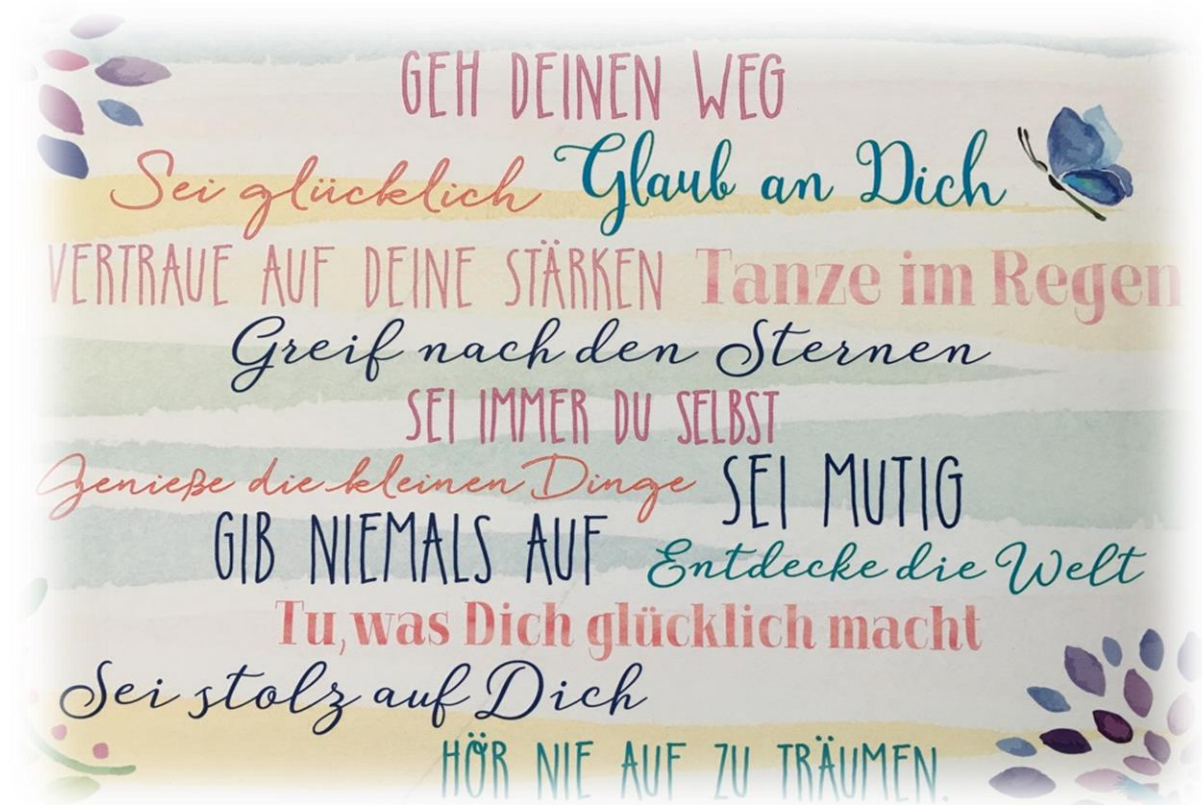 GEH DEINEN WEG
Sei glücklich Glaub an Dich
VERTRAUE AUF DEINE STÄRKEN Tanze im Regen
Greif nach den Sternen
SEI IMMER DU SELBST
Genieße die kleinen Dinge SEI MUTIG
GIB NIEMALS AUF Entdecke die Welt
Tu, was Dich glücklich macht
Sei stolz auf Dich
HÖR NIE AUF ZU TRÄUMEN.